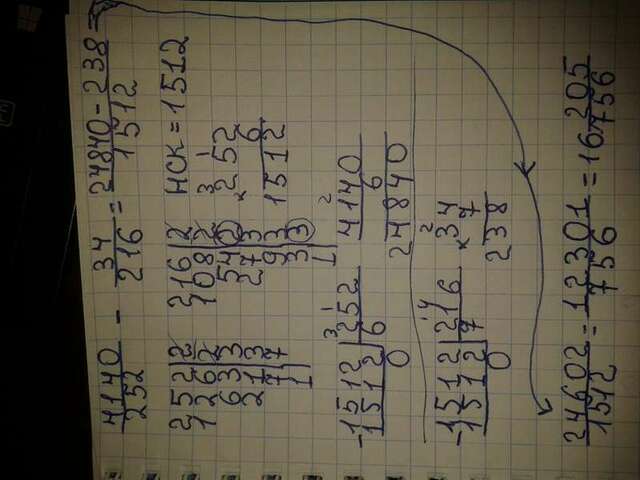 4140/252 - 34/216 = 24840-238/1512 =
252|2 216|2 НСК=1512
126|2 108|2
63|3 54|2
21|3 27|3
7|7 9|3
1 3|3
1
3 1
×252
6
1512
-1512|252
1512|6
0
3 1
2
4140
6
24840
-1512|216
1512|7
0
1 4
2
×34
7
238
24602/1512 = 12301/756 = 16 205/756